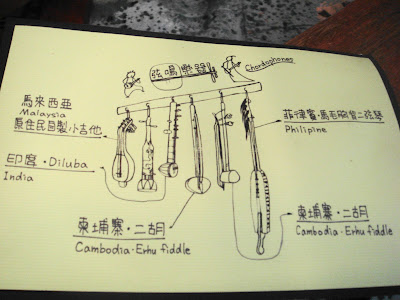 弦鳴樂器
Chordophones
馬來西亞
Malaysia
原住民自製小吉他
印度・Diluba
India
柬埔寨・二胡
Cambodia・Erhu fiddle
菲律賓・馬布阿曾二弦琴
Philipine
柬埔寨・二胡
Cambodia・Erhu fiddle